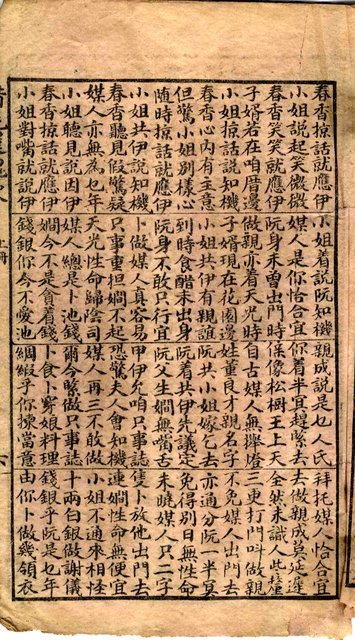 春香掠話就應伊 小姐着說阮知機 親成說是乜人氏 拜托媒人恰合宜
小姐說起笑微微 媒人是你恰合宜 你着半宜趕緊去 去做親成莫延遲
春香笑笑就應伊 阮身未曾出門時 保像松樹王上天 全然未識人此
子婿若在咱厝邊 做親亦着天光時 自古媒人無攑燈 三更打門叫做親
小姐掠話說知機 子婿現在花園邊 姓董良才親名字 不免媒人出門去
春香心內有主意 小姐共伊有親誼 阮共小姐嫁乞去 亦通分阮一半
但驚小姐別樣心 到時食醋未出身 阮着共伊先議定 免得別日無性命
隨時掠話就應伊 阮身不敢只行宜 阮父生嫺無嘴舌 未曉媒人只二字
小姐共伊說知機 卜做媒人真容易 甲伊允咱只事誌 使卜放他出門去
春香聽見假驚疑 只事重担嫺不起 恐驚夫人會知機 連嫺性命無便宜
媒人亦無為乜年 天光性命歸陰司 媒人再三不敢做 小姐不通來相怪
小姐聽見說因伊 媒人總是卜池錢 爾今緊做只事誌 十兩白銀做謝儀
春香食卜就應伊 嫺今不是貪着錢 卜食卜穿娘料理 錢銀乎阮是乜年
小姐對嘴就說伊 錢銀你今不愛池 綢緞乎你揀當意 由你卜做幾領衣